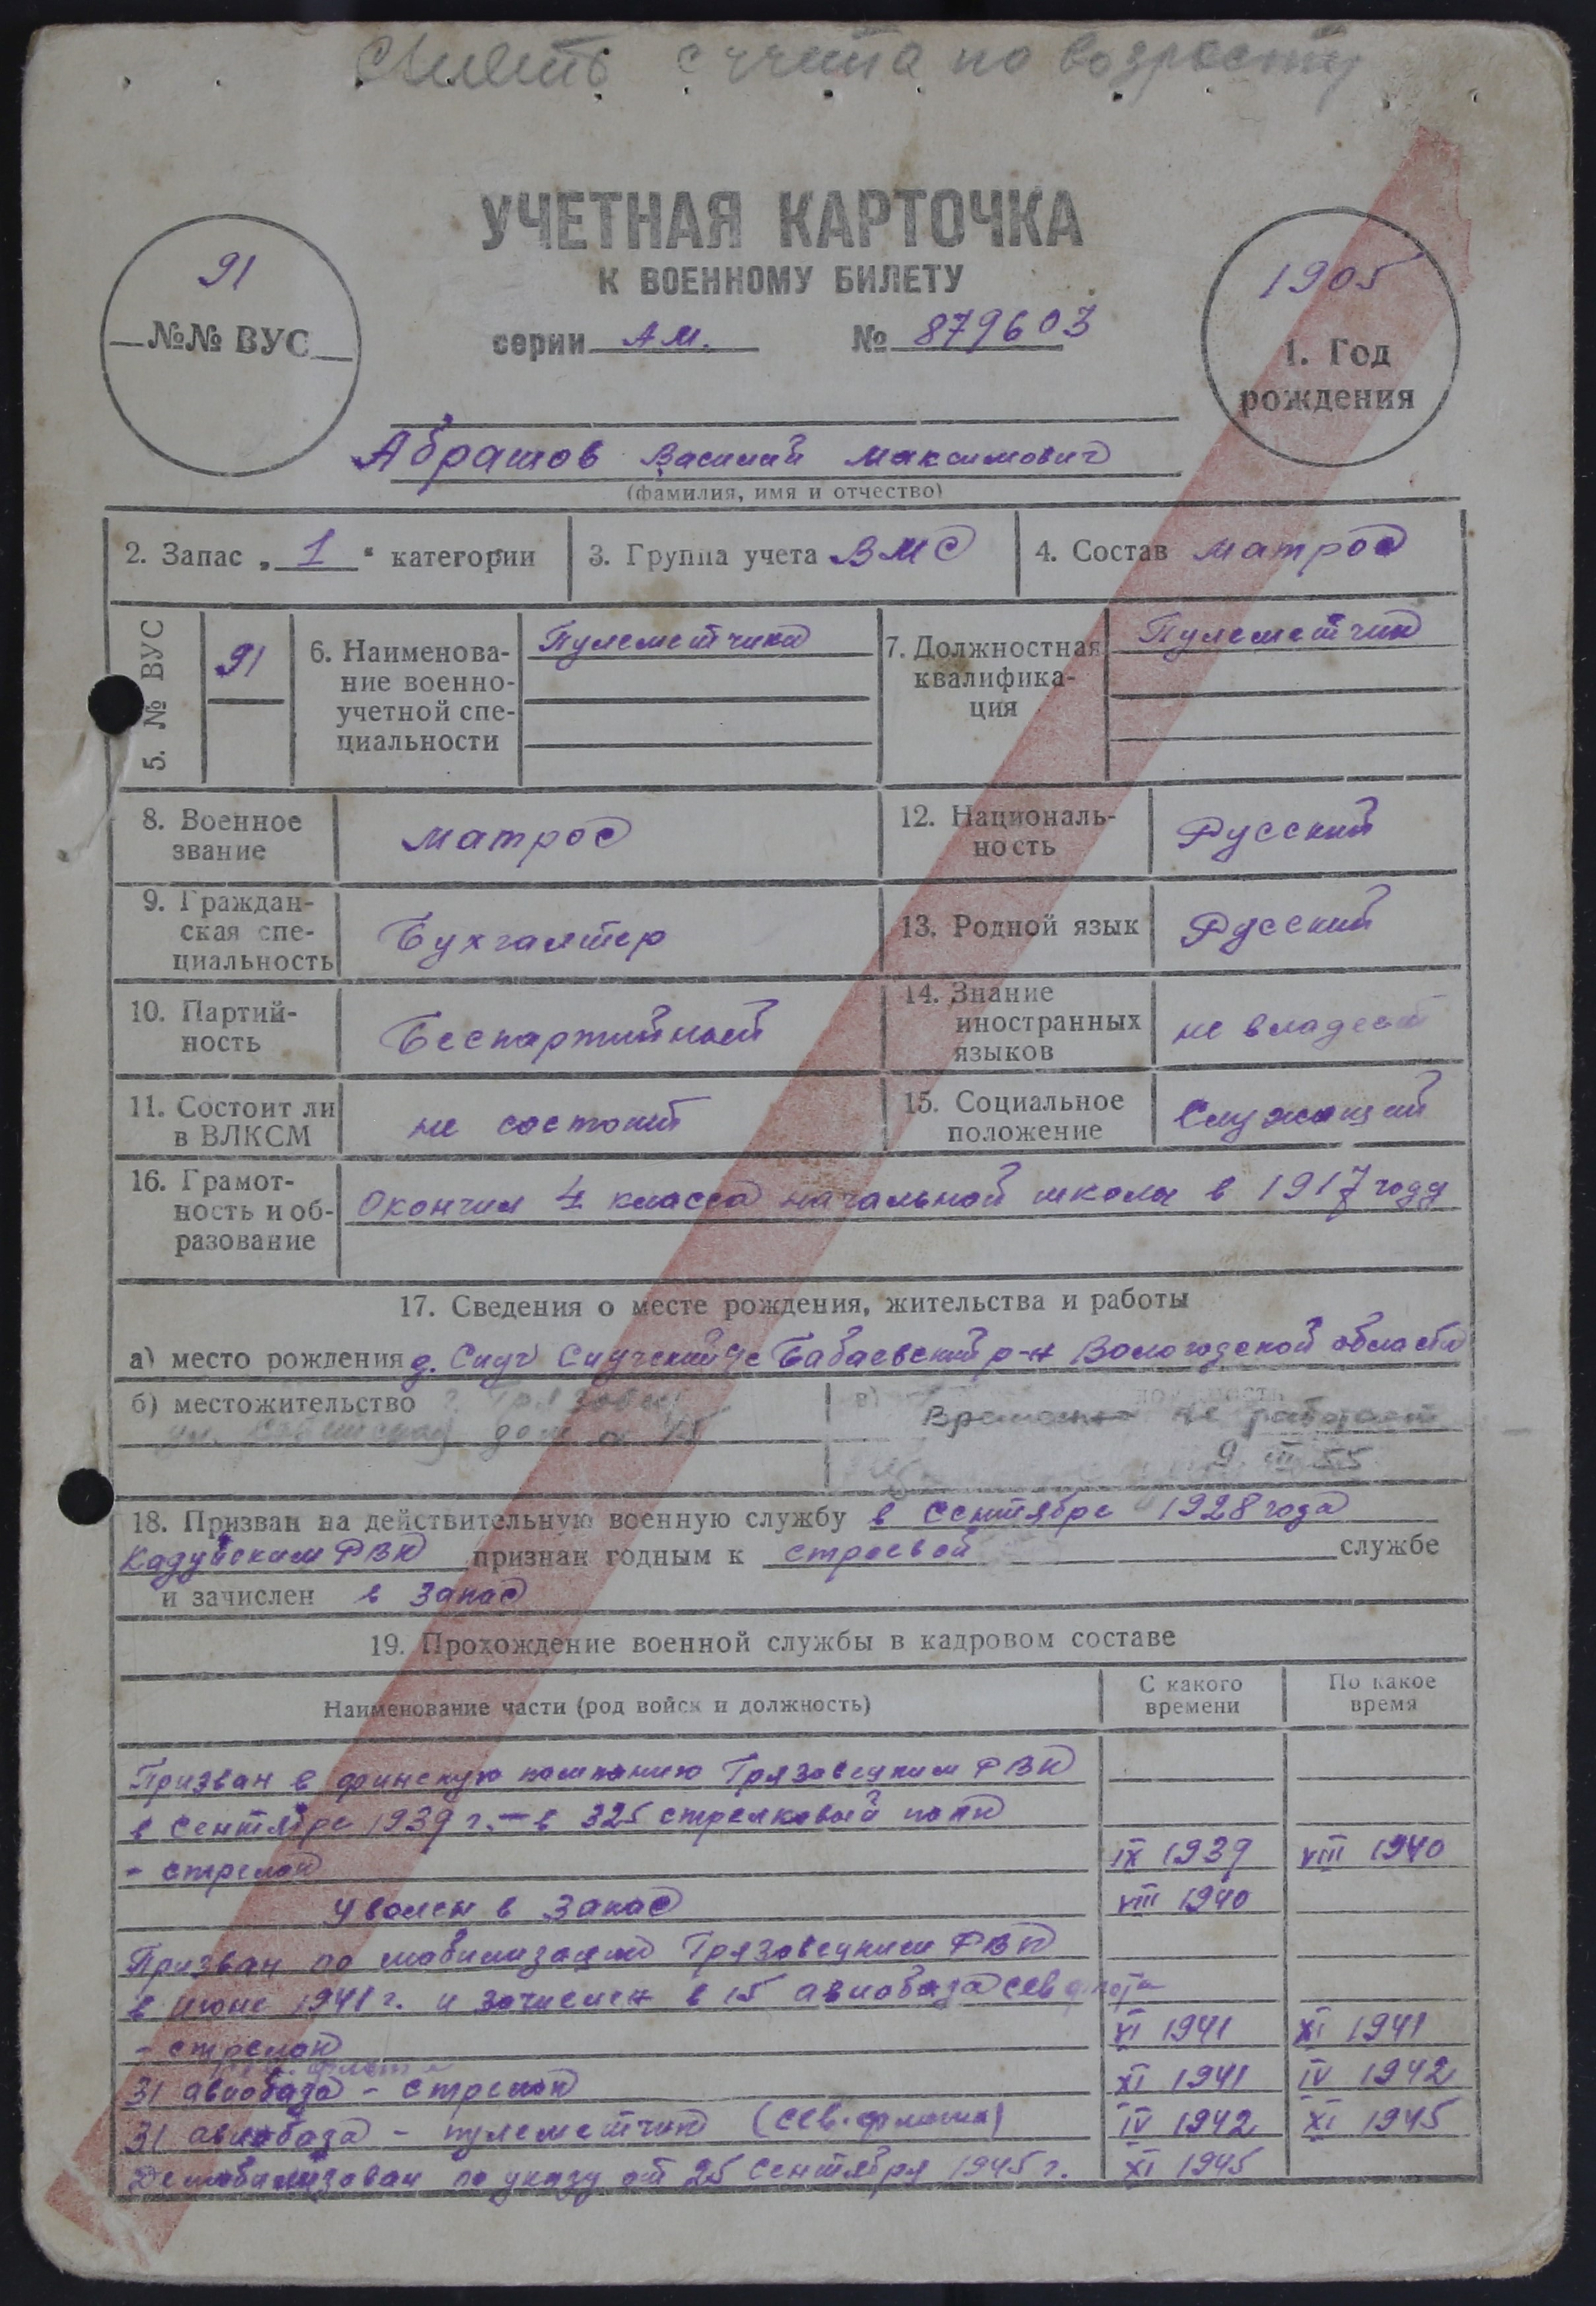 с учета по возрасту
УЧЕТНАЯ КАРТОЧКА
К ВОЕННОМУ БИЛЕТУ
серии АМ. № 879603
91
№№ ВУС
1905
1. Год
рождения
Абрашов Василий Максимович
(фамилия, имя и отчество)
2. Запас „ 1 " категории
3. Группа учета ВМС
4. Состав матрос
5. № ВУС
91
6. Наименова-
ние военно-
учетной спе-
циальности
Пулеметчики
7. Должностная
квалифика-
ция
Пулеметчик
8. Военное
звание
матрос
12. Националь-
ность
Русский
9. Граждан-
ская спе-
циальность
Бухгалтер
13. Родной язык
Русский
10. Партий-
ность
Беспартийный
14. Знание
иностранных
языков
не владеет
11. Состоит ли
в ВЛКСМ
не состоит
15. Социальное
положение
Служащий
16. Грамот-
ность и об-
разование
Окончил 4 класса начальной школы в 1917 году
17. Сведения о месте рождения, жительства и работы
а) место рождения д. Сиуч Сиучский с Бабаевский р-н Вологодской области
б) местожительство г. Грязовец
ул. дом 45
в)
Временно не работает
9 III 55
18. Призван на действительную военную службу в Сентябре 1928 года
Кадуйским РВК признан годным к строевой службе
и зачислен в запас
19. Прохождение военной службы в кадровом составе
Наименование части (род войск и должность)
С какого
времени
По какое
время
Призван в финскую компанию Грязовецким РВК
в сентябре 1939 г. – в 325 стрелковый полк
- стрелок IX 1939 VIII 1940
Уволен в запас VIII 1940
Призван по мобилизации Грязовецким РВК
в июне 1941 г. и зачислен в 15 авиобаза сев флота
- стрелок VI 1941 XI 1941
флота
31 авиобаза - стрелок XI 1941 IV 1942
31 авиобаза - пулеметчик (сев. флота) IV 1942 XI 1945
Демобилизован по указу от 25 Сентября 1945 г. XI 1945